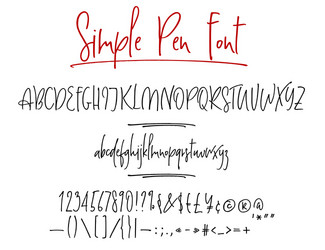 Simple Pen Font
ABCDEFGHIJKLMNOPQRSTUVWXYZ
abcdefghijklmnopqrstuvwxyz
1234567890!?%&$£¢©®@
'*""
—()\[]/{}|—:;.,«-»#<_>=+